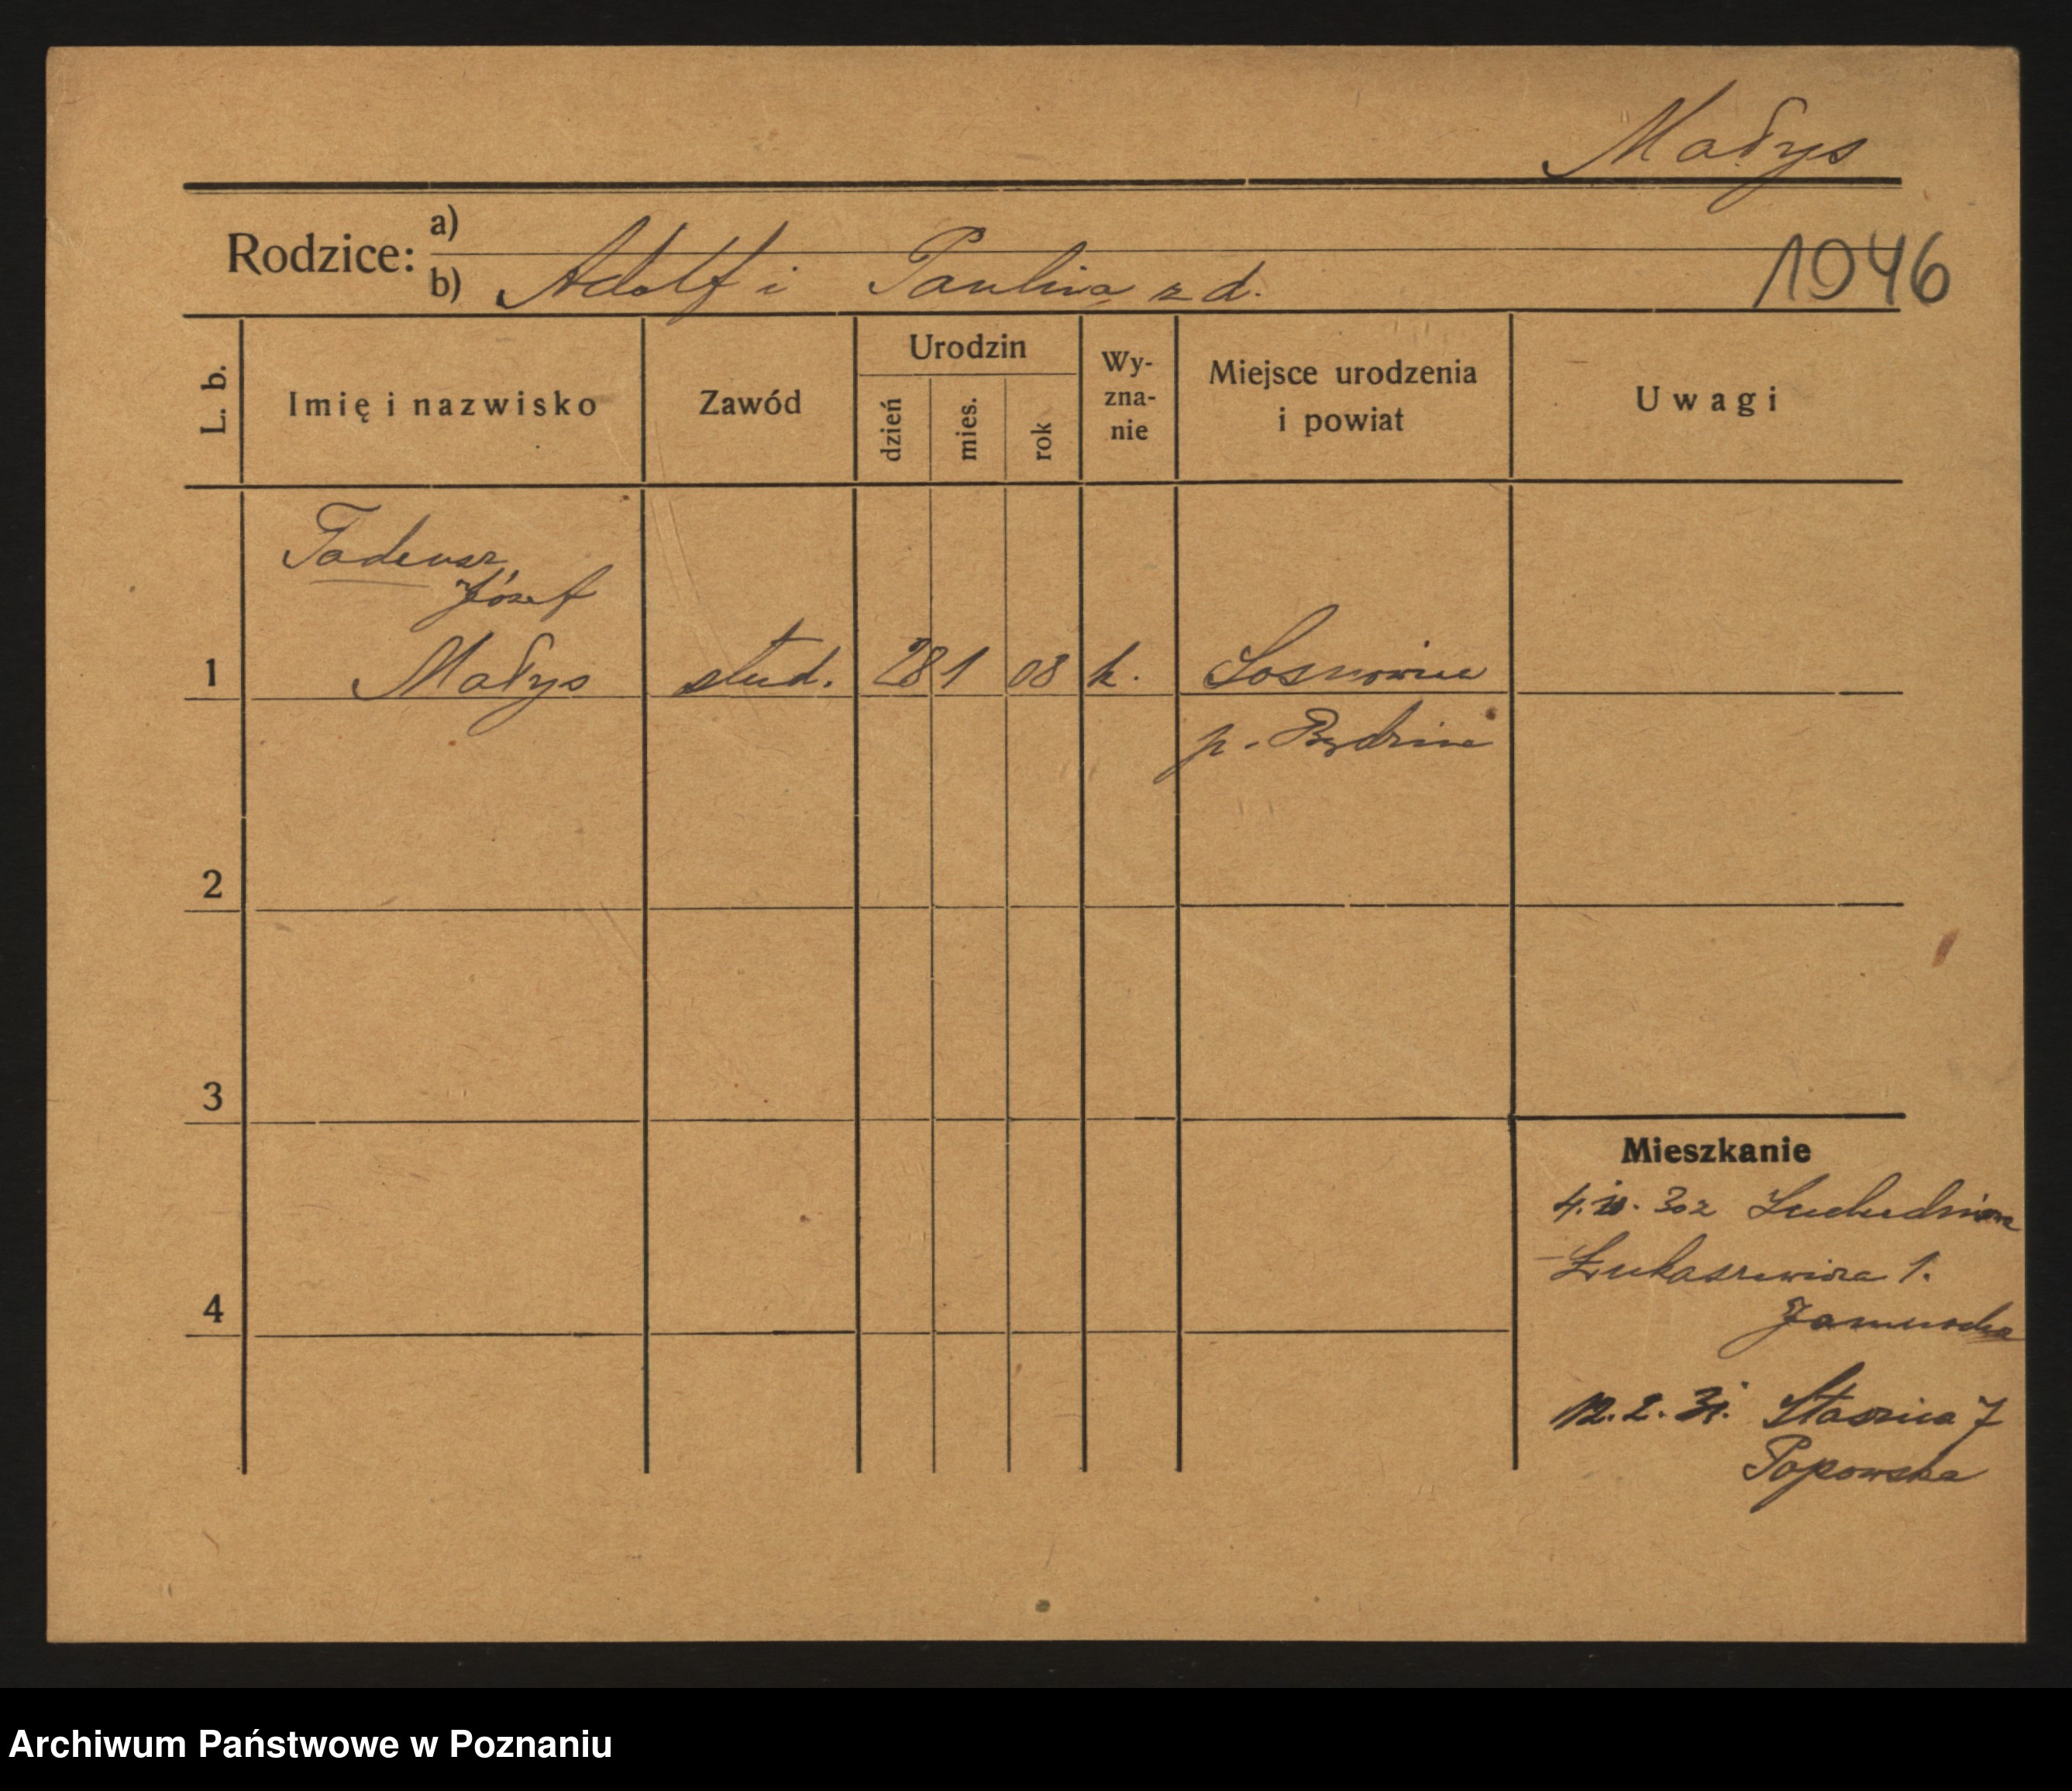 Małys
Rodzice: a)
b) Adolf i Paulina z d.
1946
L. b.
Imię i nazwisko
Zawód
Urodzin
dzień
mies.
rok
Wy-
zna-
nie
Miejsce urodzenia
i powiat
Uwagi
Tadeusz
Józef
1 Małys stud. 28 1 08 k. Sosnowice
p. Będzin
2
3
4
Mieszkanie
Łukaszewicza 1.
12.2.31. Staszica 7
Popowska
Archiwum Państwowe w Poznaniu